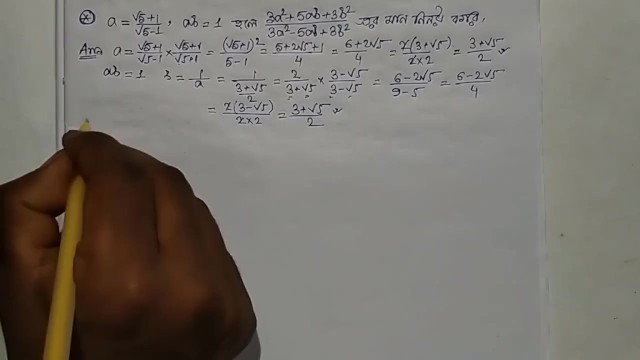 ⊛ a = (√5+1)/(√5-1), ab = 1 হলে (3a²+5ab+3b²)/(3a²-5ab+3b²) এর মান নির্ণয় করো।
Ans a = (√5+1)/(√5-1) × (√5+1)/(√5+1) = (√5+1)²/(5-1) = (5+2√5+1)/4 = (6+2√5)/4 = 2(3+√5)/(2×2) = (3+√5)/2
ab = 1 b = 1/a = 1/((3+√5)/2) = 2/(3+√5) × (3-√5)/(3-√5) = (6-2√5)/(9-5) = (6-2√5)/4
= 2(3-√5)/(2×2) = (3+√5)/2